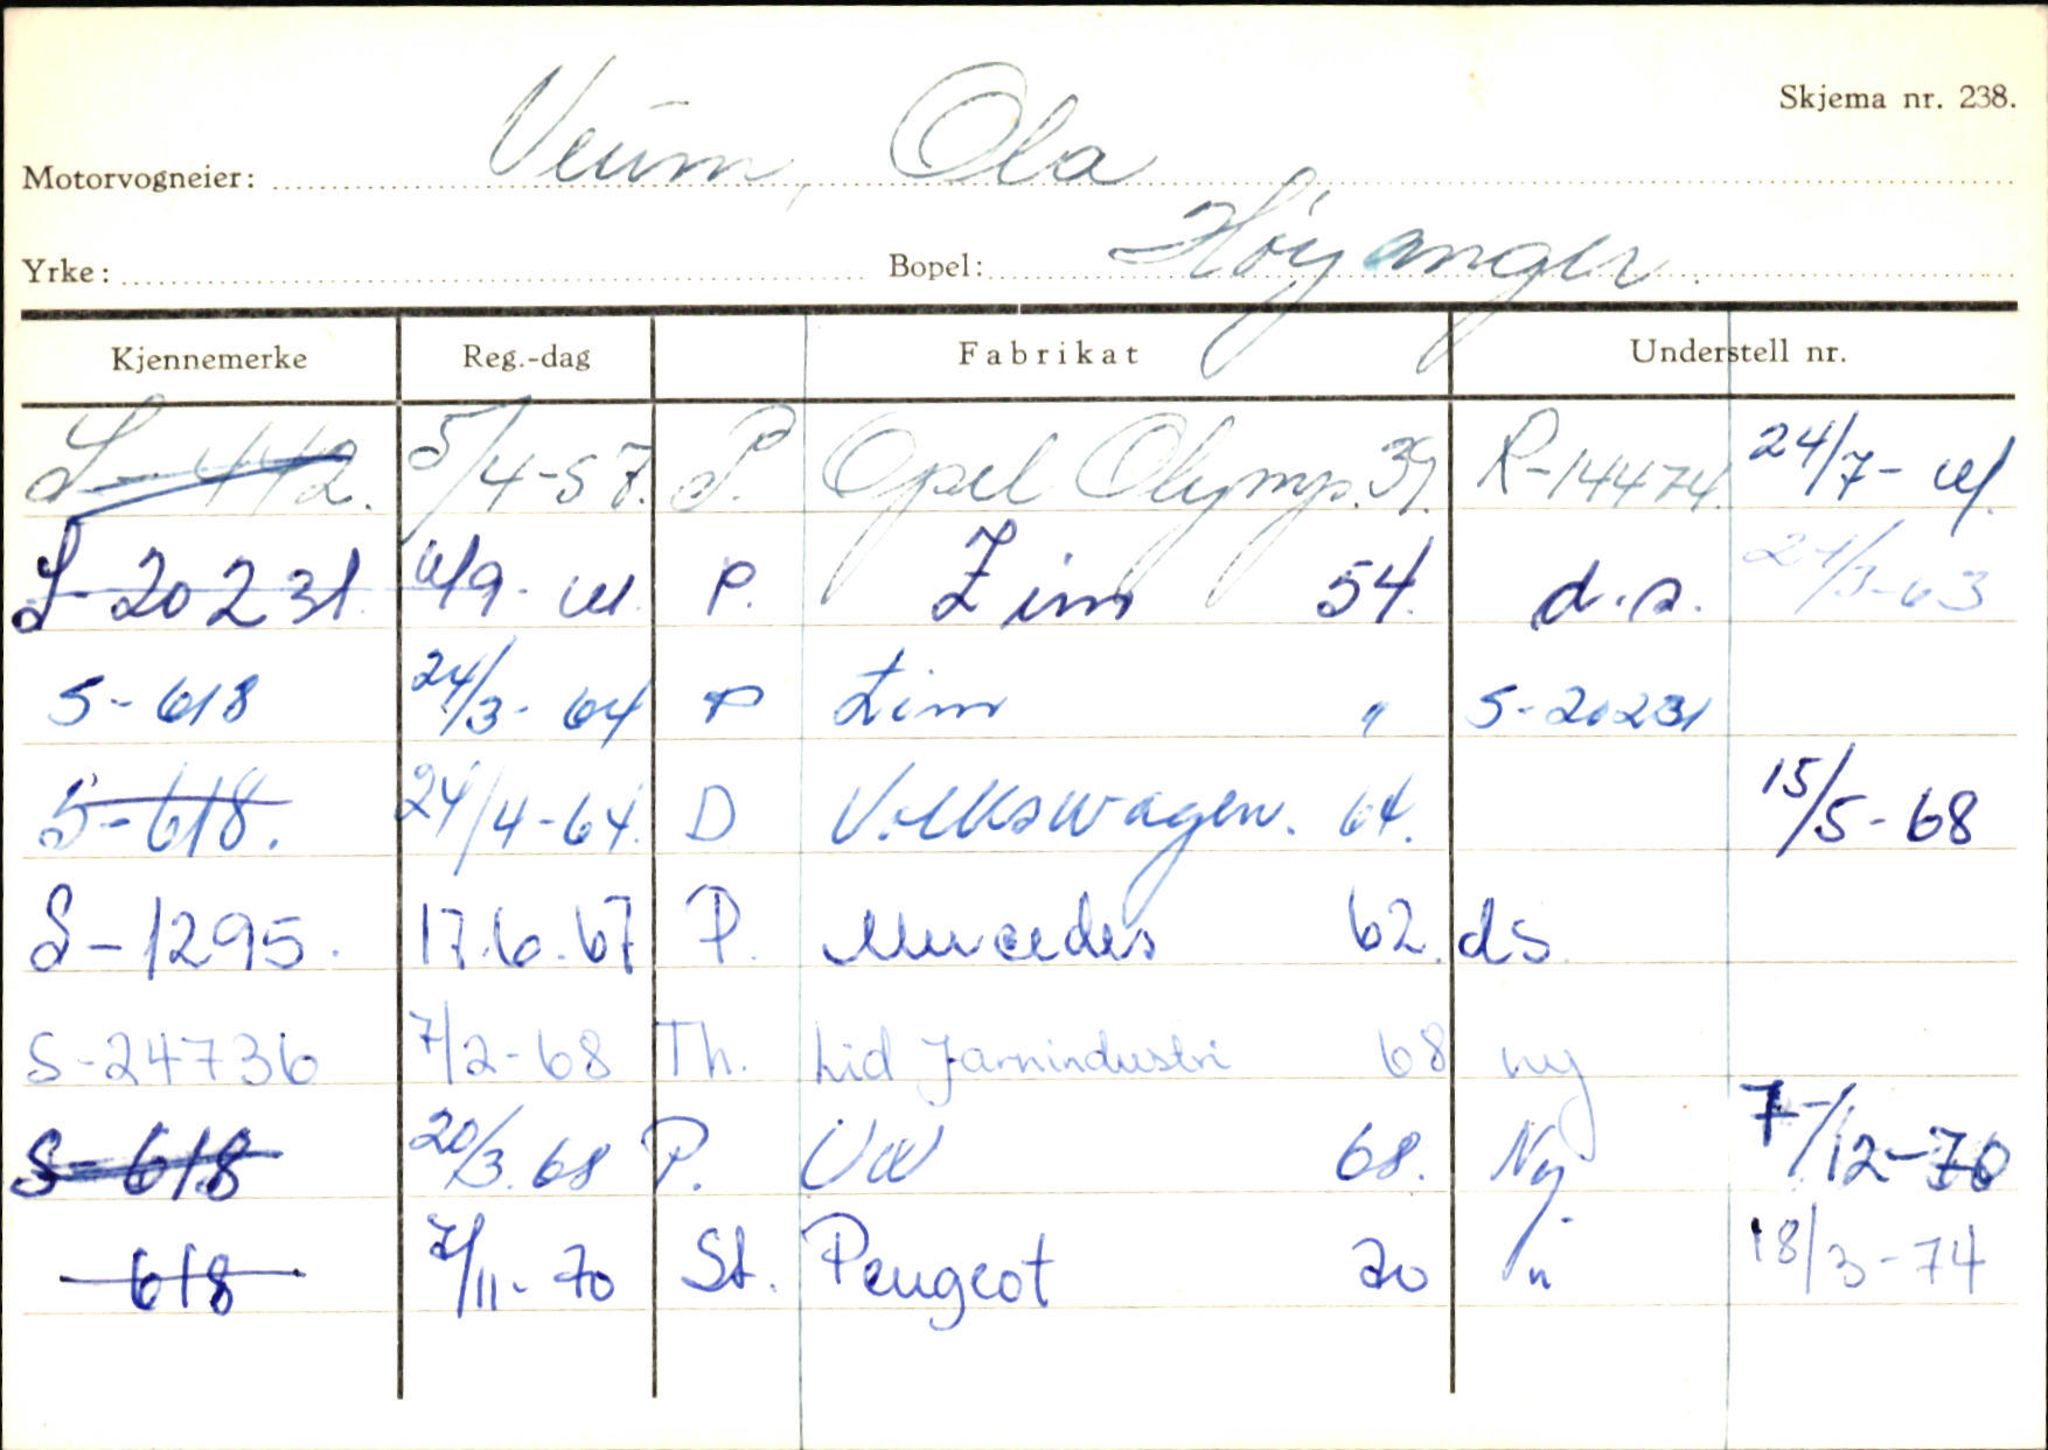 Skjema nr. 238.
Motorvogneier: Veum, Ola
Yrke: Bopel: Høyanger.
Kjennemerke Reg.-dag Fabrikat Understell nr.
S-442. 5/4-57. P. Opel Olymp. 39. R-14474. 24/7-61.
S-20231 6/9-61. P. Zim 54. d.s. 24/3-63
S-618 24/3-64 P Zim " S-20231
S-618. 24/4-64. D Volkswagen. 64. 15/5-68
S-1295. 17.6.67 P. Mercedes 62. ds.
S-24736 7/2-68 Th. Lid Jarnindustri 68 ny
S-618 20/3.68 P. VW 68. Ny. 7/12-70
618 7/11-70 St. Peugeot 70 " 18/3-74